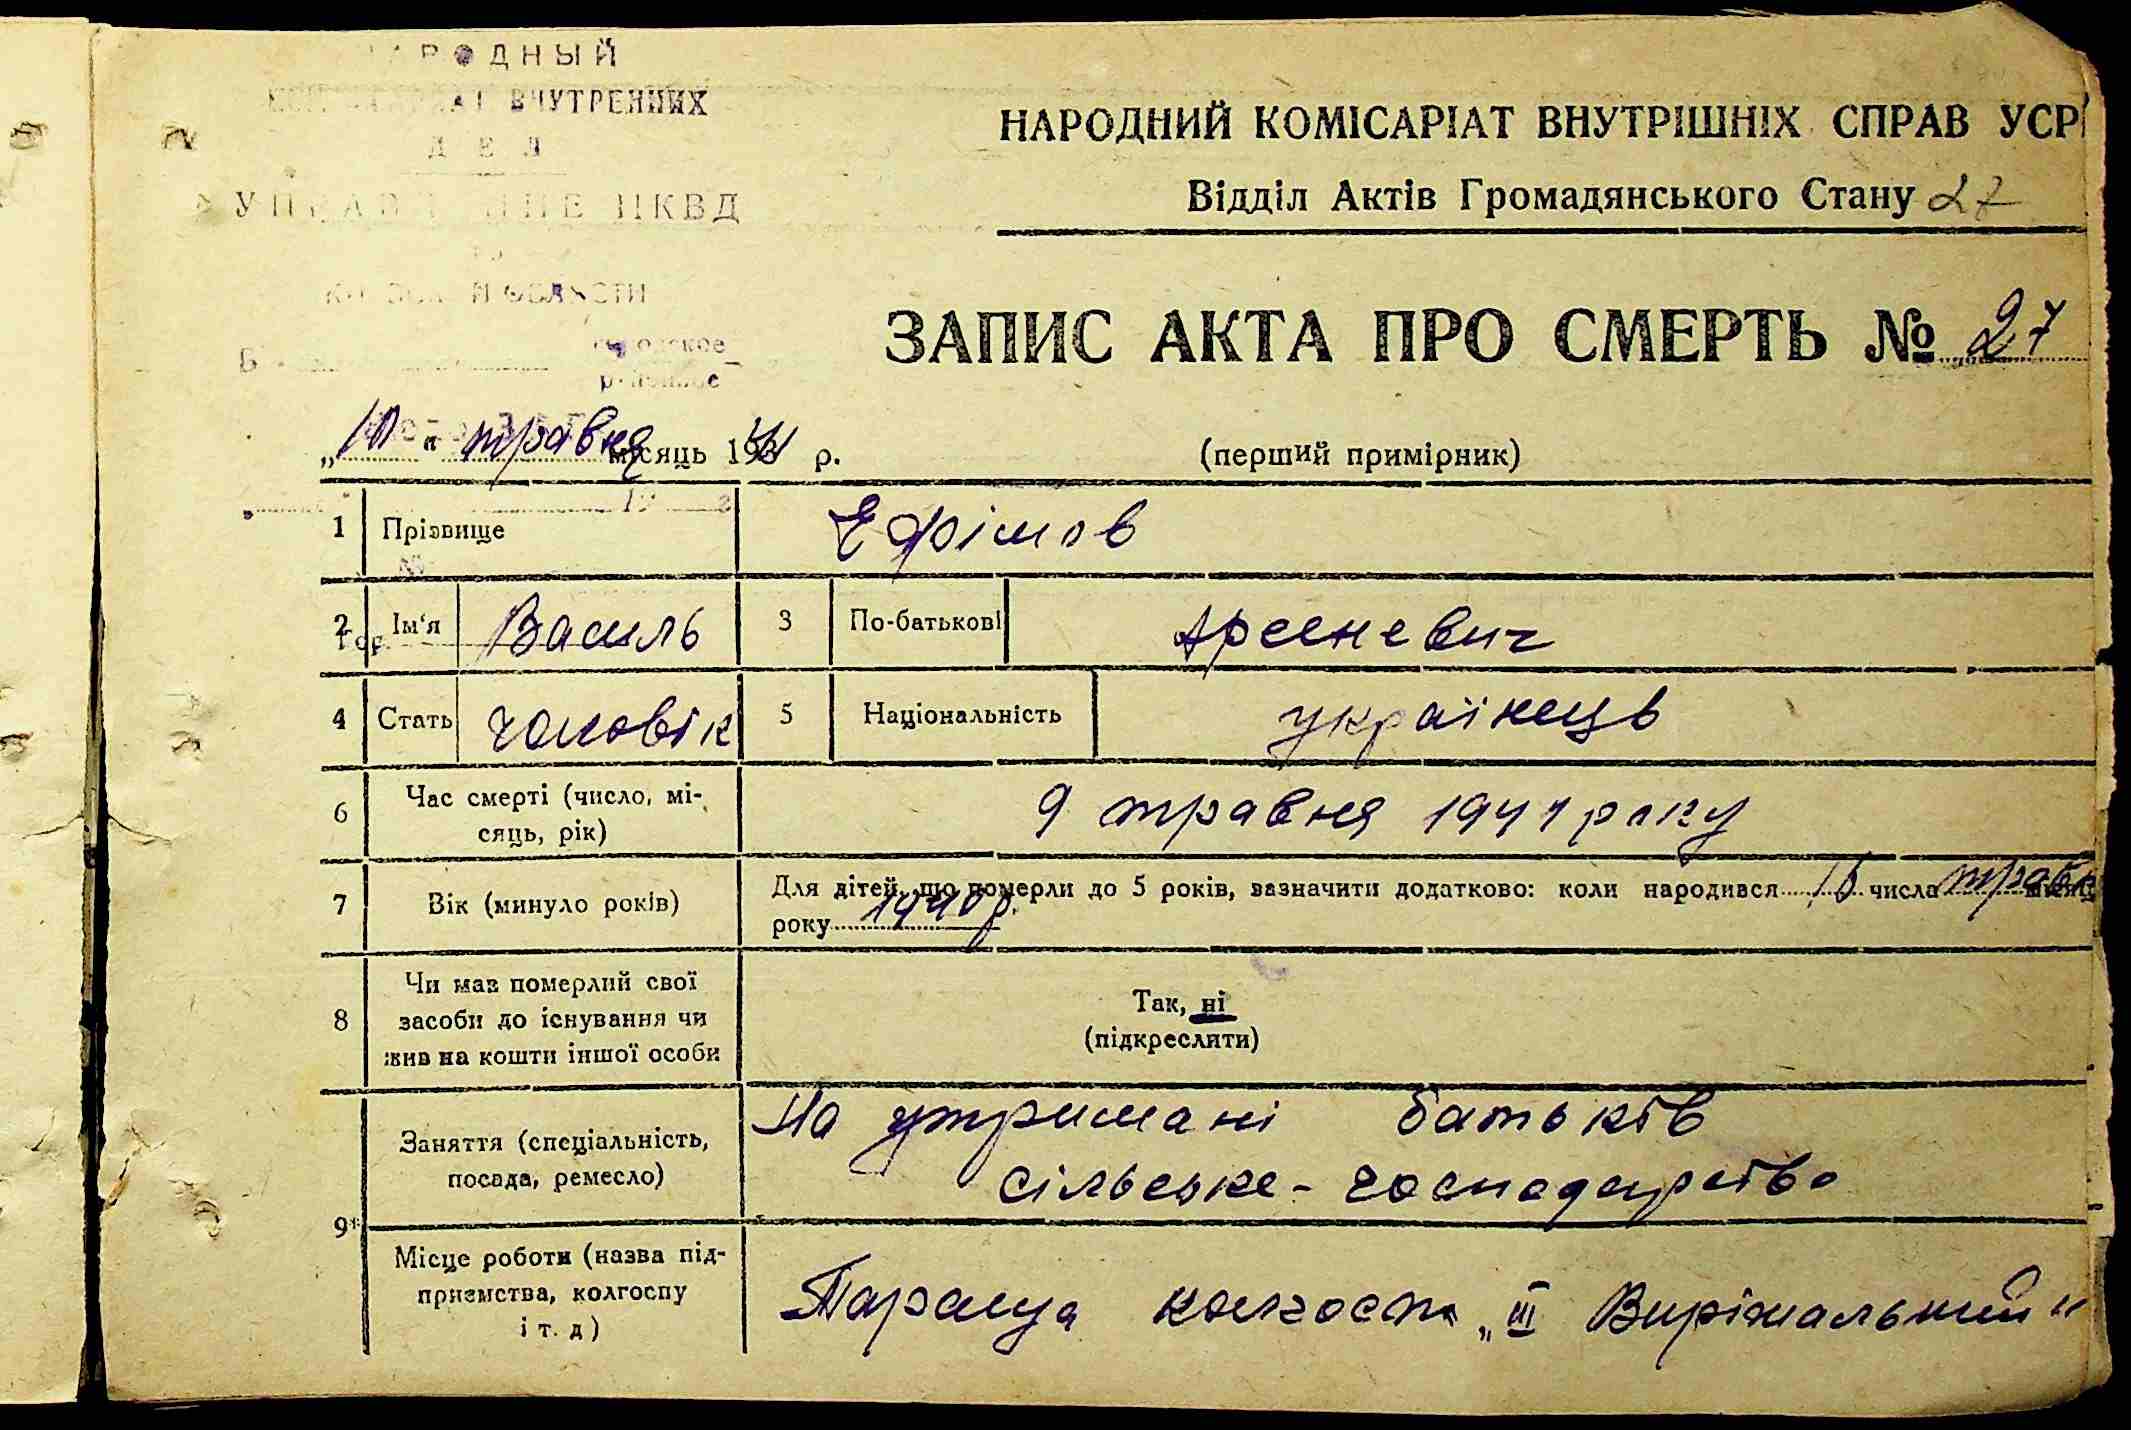 НАРОДНЫЙ
ВНУТРЕННИХ
ДЕЛ
УПРАВЛЕНИЕ НКВД
ОБЛАСТИ
городское
районное
НАРОДНИЙ КОМІСАРІАТ ВНУТРІШНІХ СПРАВ УСР
Відділ Актів Громадянського Стану 27
ЗАПИС АКТА ПРО СМЕРТЬ № 27
„10“ травня місяць 1941 р.
(перший примірник)
1 Прізвище Ефімов
2 Ім'я Василь 3 По-батькові Арсеневич
4 Стать чоловік 5 Національність українець
6 Час смерті (число, мі-
сяць, рік) 9 травня 1941 року
7 Вік (минуло років) Для дітей, що померли до 5 років, зазначити додатково: коли народився 15 числа травн
року 1940 р.
8 Чи мав померлий свої
засоби до існування чи
жив на кошти іншої особи
Так, ні
(підкреслити)
9* Заняття (спеціальність,
посада, ремесло)
На утримані батьків
сільське-господарство
Місце роботи (назва під-
приємства, колгоспу
і т. д)
Тараща колгосп „III Вирішальний"